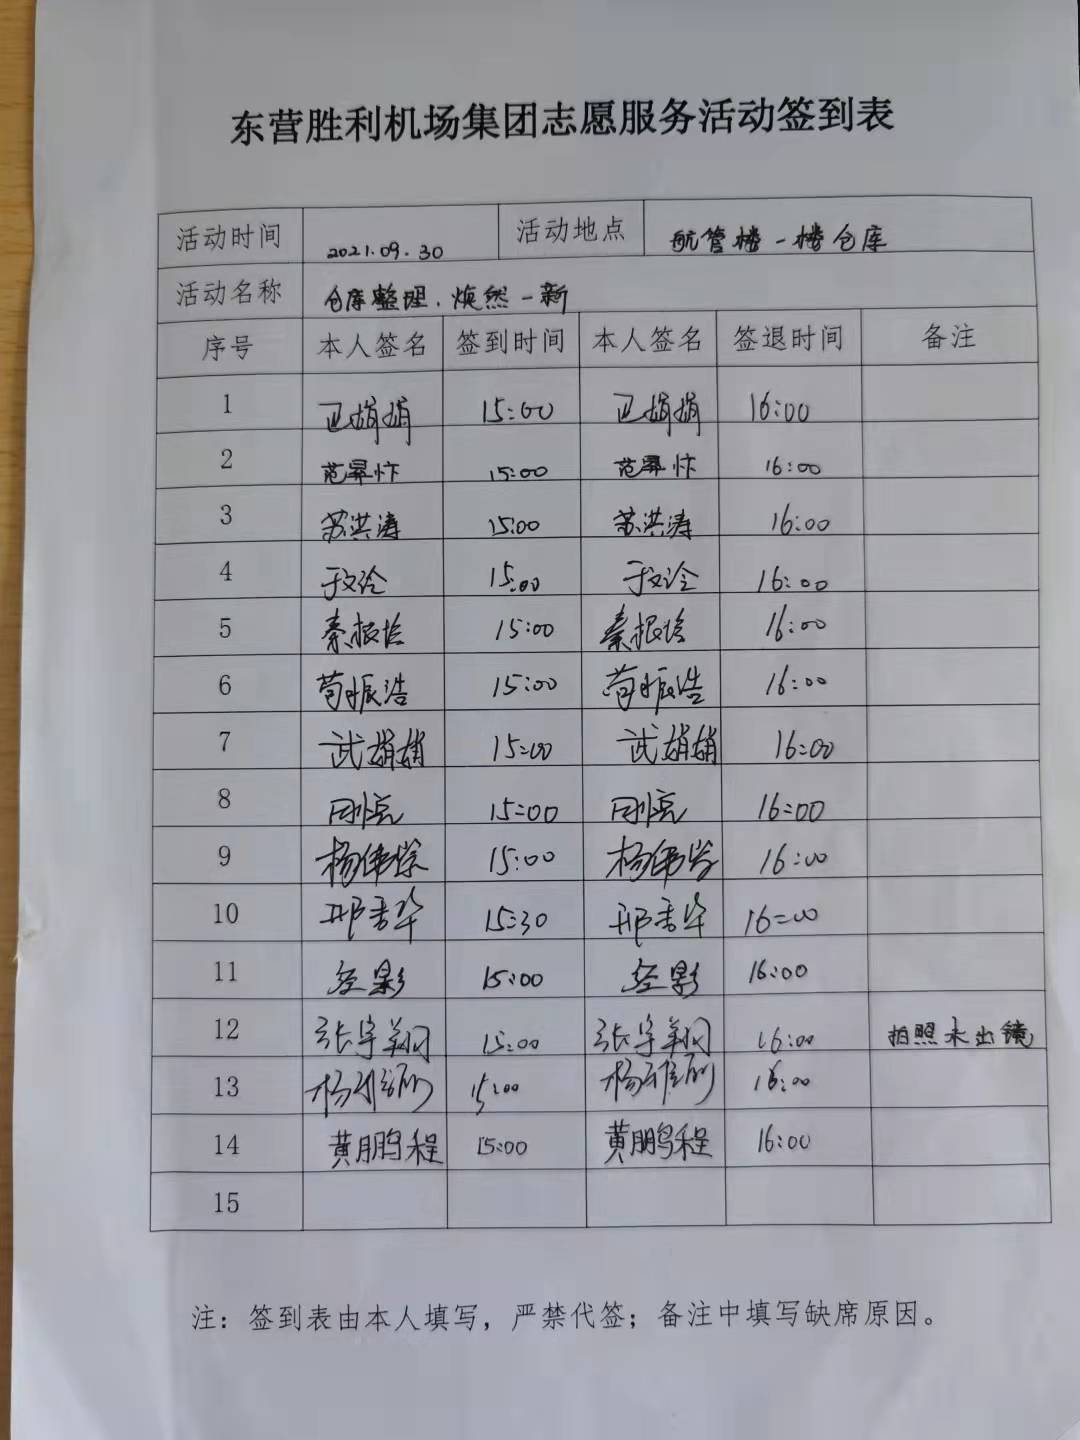 东营胜利机场集团志愿服务活动签到表
活动时间 2021.09.30 活动地点 航管楼一楼仓库
活动名称 仓库整理.焕然一新
序号 本人签名 签到时间 本人签名 签退时间 备注
1 卫娟娟 15:00 卫娟娟 16:00
2 范昪忭 15:00 范昪忭 16:00
3 苏洪涛 15:00 苏洪涛 16:00
4 于文泠 15:00 于文泠 16:00
5 秦根培 15:00 秦根培 16:00
6 苟振浩 15:00 苟振浩 16:00
7 武娟娟 15:00 武娟娟 16:00
8 15:00 16:00
9 杨伟 15:00 杨伟 16:00
10 邢秀华 15:30 邢秀华 16:00
11 经影 15:00 经影 16:00
12 张宇翔 15:00 张宇翔 16:00 拍照未出镜
13 杨 15:00 杨 16:00
14 黄鹏程 15:00 黄鹏程 16:00
15
注：签到表由本人填写，严禁代签；备注中填写缺席原因。